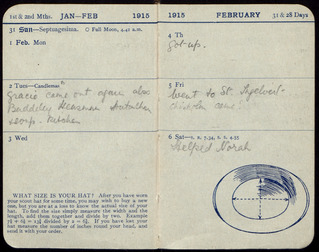 1st & 2nd Mths. JAN—FEB 1915
31 Sun—Septuagesima. O Full Moon, 4.41 a.m.
1 Feb. Mon
2 Tues—Candlemas
Gracie came out again also
Baddeley
soup. kitchen
3 Wed
WHAT SIZE IS YOUR HAT? After you have worn
your scout hat for some time, you may wish to buy a new
one, but you are at a loss to know the actual size of your
hat. To find the size simply measure the width and the
length, add them together and divide by two. Example
number of inches round your head, and
send it with your order.
1915 FEBRUARY 31 & 28 Days
4 Th
Got up.
5 Fri
Went to St.
came
6 Sat—s. r. 7.34, s. s. 4.55
Helped Norah